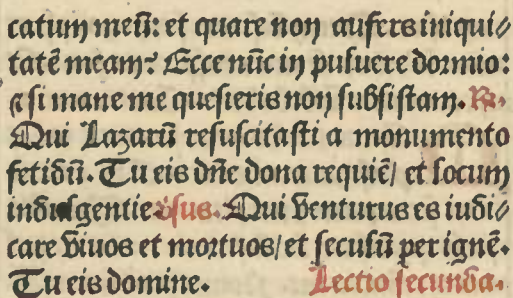 catum meũ: et quare non aufers iniqui⸗
tatẽ meam? Ecce nũc in puluere dormio:
⁊ si mane me quesieris non subsistam. ℟.
Qui Lazarũ resuscitasti a monumento
fetidũ. Tu eis dñe dona requiẽ/ et locum
indulgentie v̕sus. Qui venturus es iudi⸗
care viuos et mortuos/ et seculũ per ignẽ.
Tu eis domine. Lectio secunda.